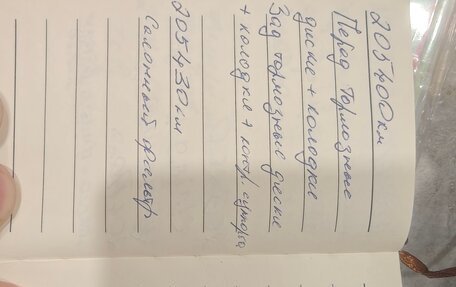 205400км
Перед тормозные
диски + колодки
Зад тормозные диски
+ колодки + направ. суппорта
205430км
Салонный фильтр